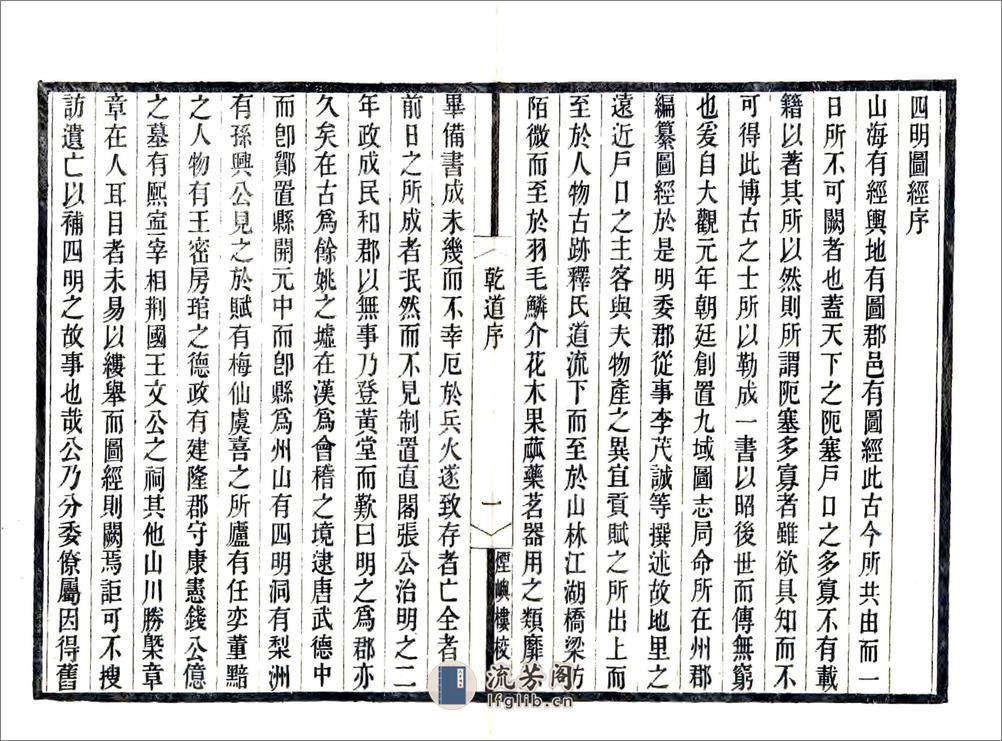 四明圖經序
山海有經輿地有圖郡邑有圖經此古今所共由而一
日所不可闕者也蓋天下之阨塞戸口之多寡不有載
籍以著其所以然則所謂阨塞多寡者雖欲具知而不
可得此博古之士所以勒成一書以昭後世而傳無窮
也爰自大觀元年朝廷創置九域圖志局命所在州郡
編纂圖經於是明委郡從事李茂誠等撰述故地里之
遠近戸口之主客與夫物產之異宜貢賦之所出上而
至於人物古跡釋氏道流下而至於山林江湖橋梁坊
陌微而至於羽毛鱗介花木果蓏藥茗器用之類靡
乾道序
一
煙嶼樓校
畢備書成未幾而不幸厄於兵火遂致存者亡全者
前日之所成者泯然而不見制置直閣張公治明之二
年政成民和郡以無事乃登黃堂而歎曰明之爲郡亦
久矣在古爲餘姚之墟在漢爲會稽之境逮唐武德中
而卽鄮置縣開元中而卽縣爲州山有四明洞有梨洲
有孫興公見之於賦有梅仙虞喜之所廬有任奕董黯
之人物有王密房琯之德政有建隆郡守康憲錢公億
之墓有熙寧宰相荆國王文公之祠其他山川勝槩章
章在人耳目者未易以縷舉而圖經則闕焉詎可不搜
訪遺亡以補四明之故事也哉公乃分委僚屬因得舊
流芳阁
lfglib.cn